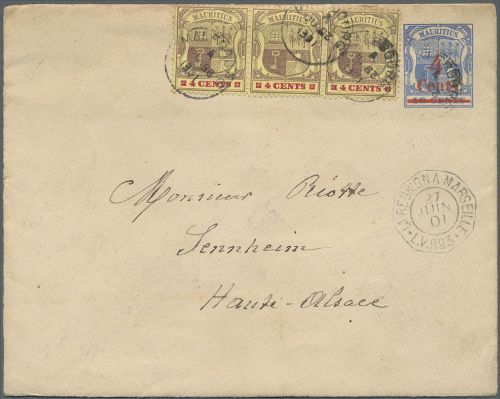 MAURITIUS
MAURITIUS
MAURITIUS
MAURITIUS
4 CENTS
4 CENTS
4 CENTS
4
Cents
Monsieur Riotte
Sennheim
Haute-Alsace
LA RÉUNION A MARSEILLE
27
JUIN
01
L.V. No3